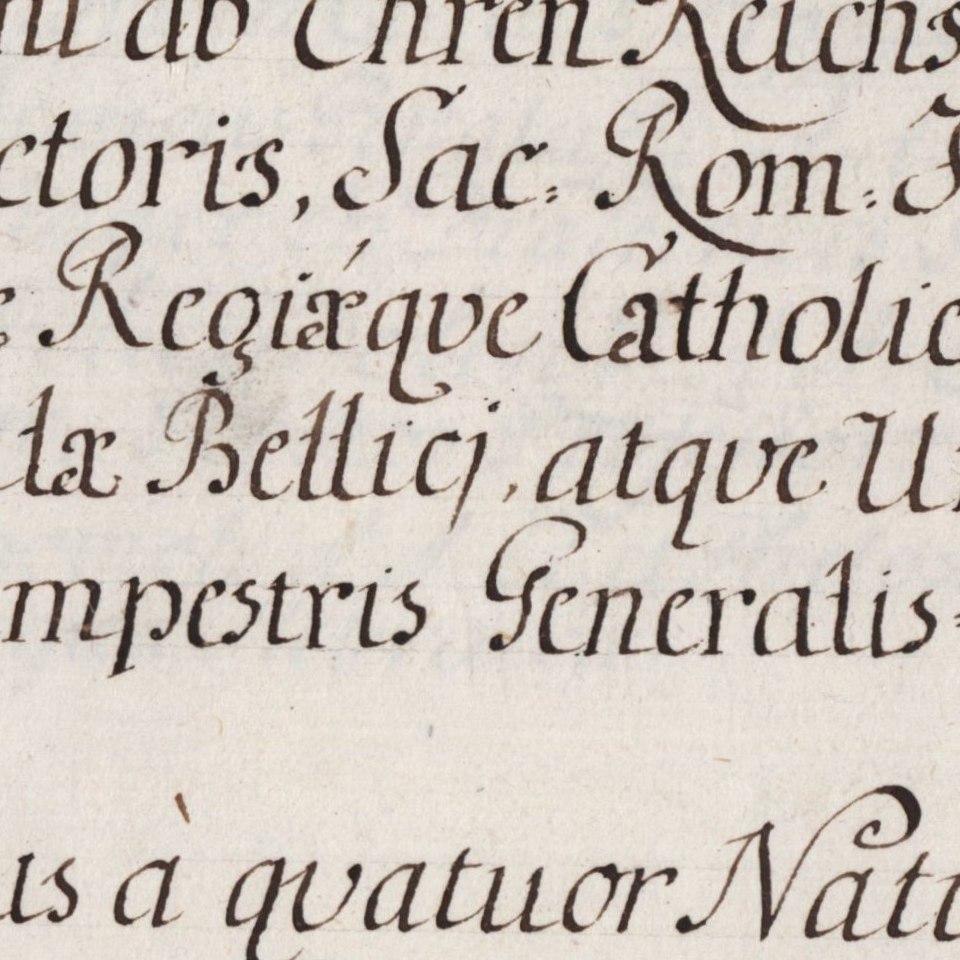 ab Ehren Reichs
ctoris, Sac: Rom: I
Regiǽqve Catholic
læ Bellicj, atqve U
mpestris Generalis
us à qvatuor Natu